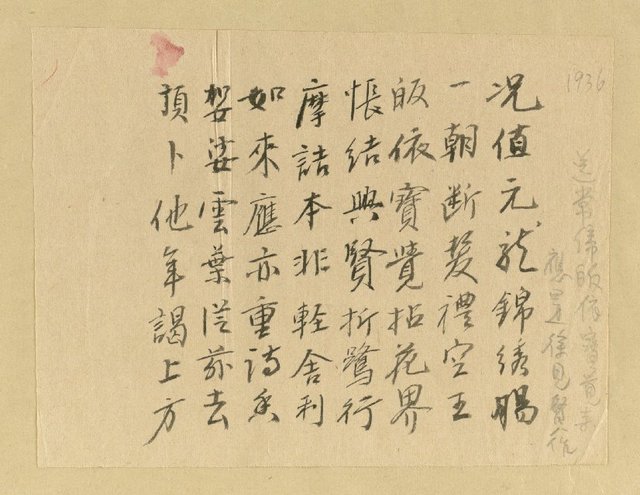 1936
送常 皈依寶覺寺
應是徐見賢作
況值元龍錦綉腸
一朝断髮禮空王
皈依寶覺拈花界
悵結興賢折鷺行
摩詰本非軽舍利
如來應亦重詩香
袈裟雲葉從茲去
頂卜他年謁上方